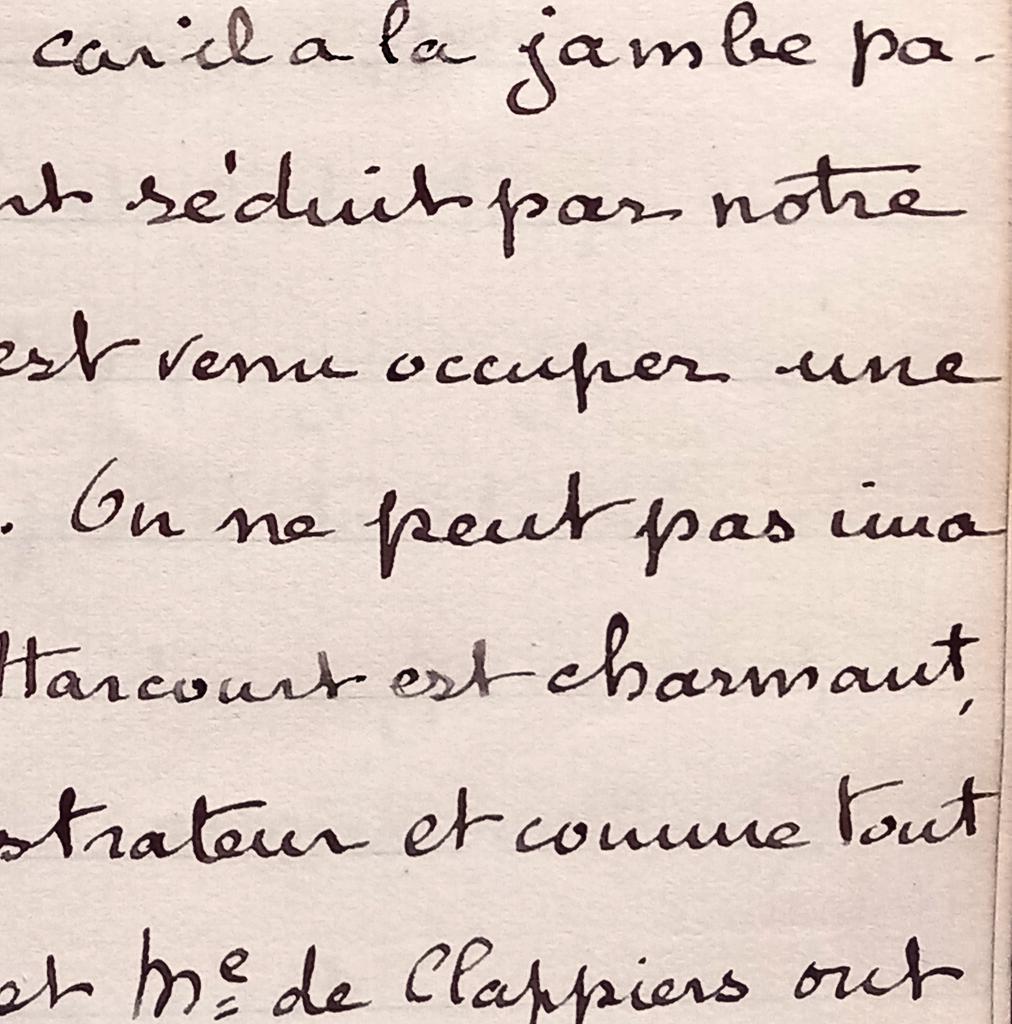 car il a la jambe pa-
nt séduit par notre
est venu occuper une
. On ne peut pas ima
Harcourt est charmant,
strateur et comme tout
et Mᵉ de Clappiers ont